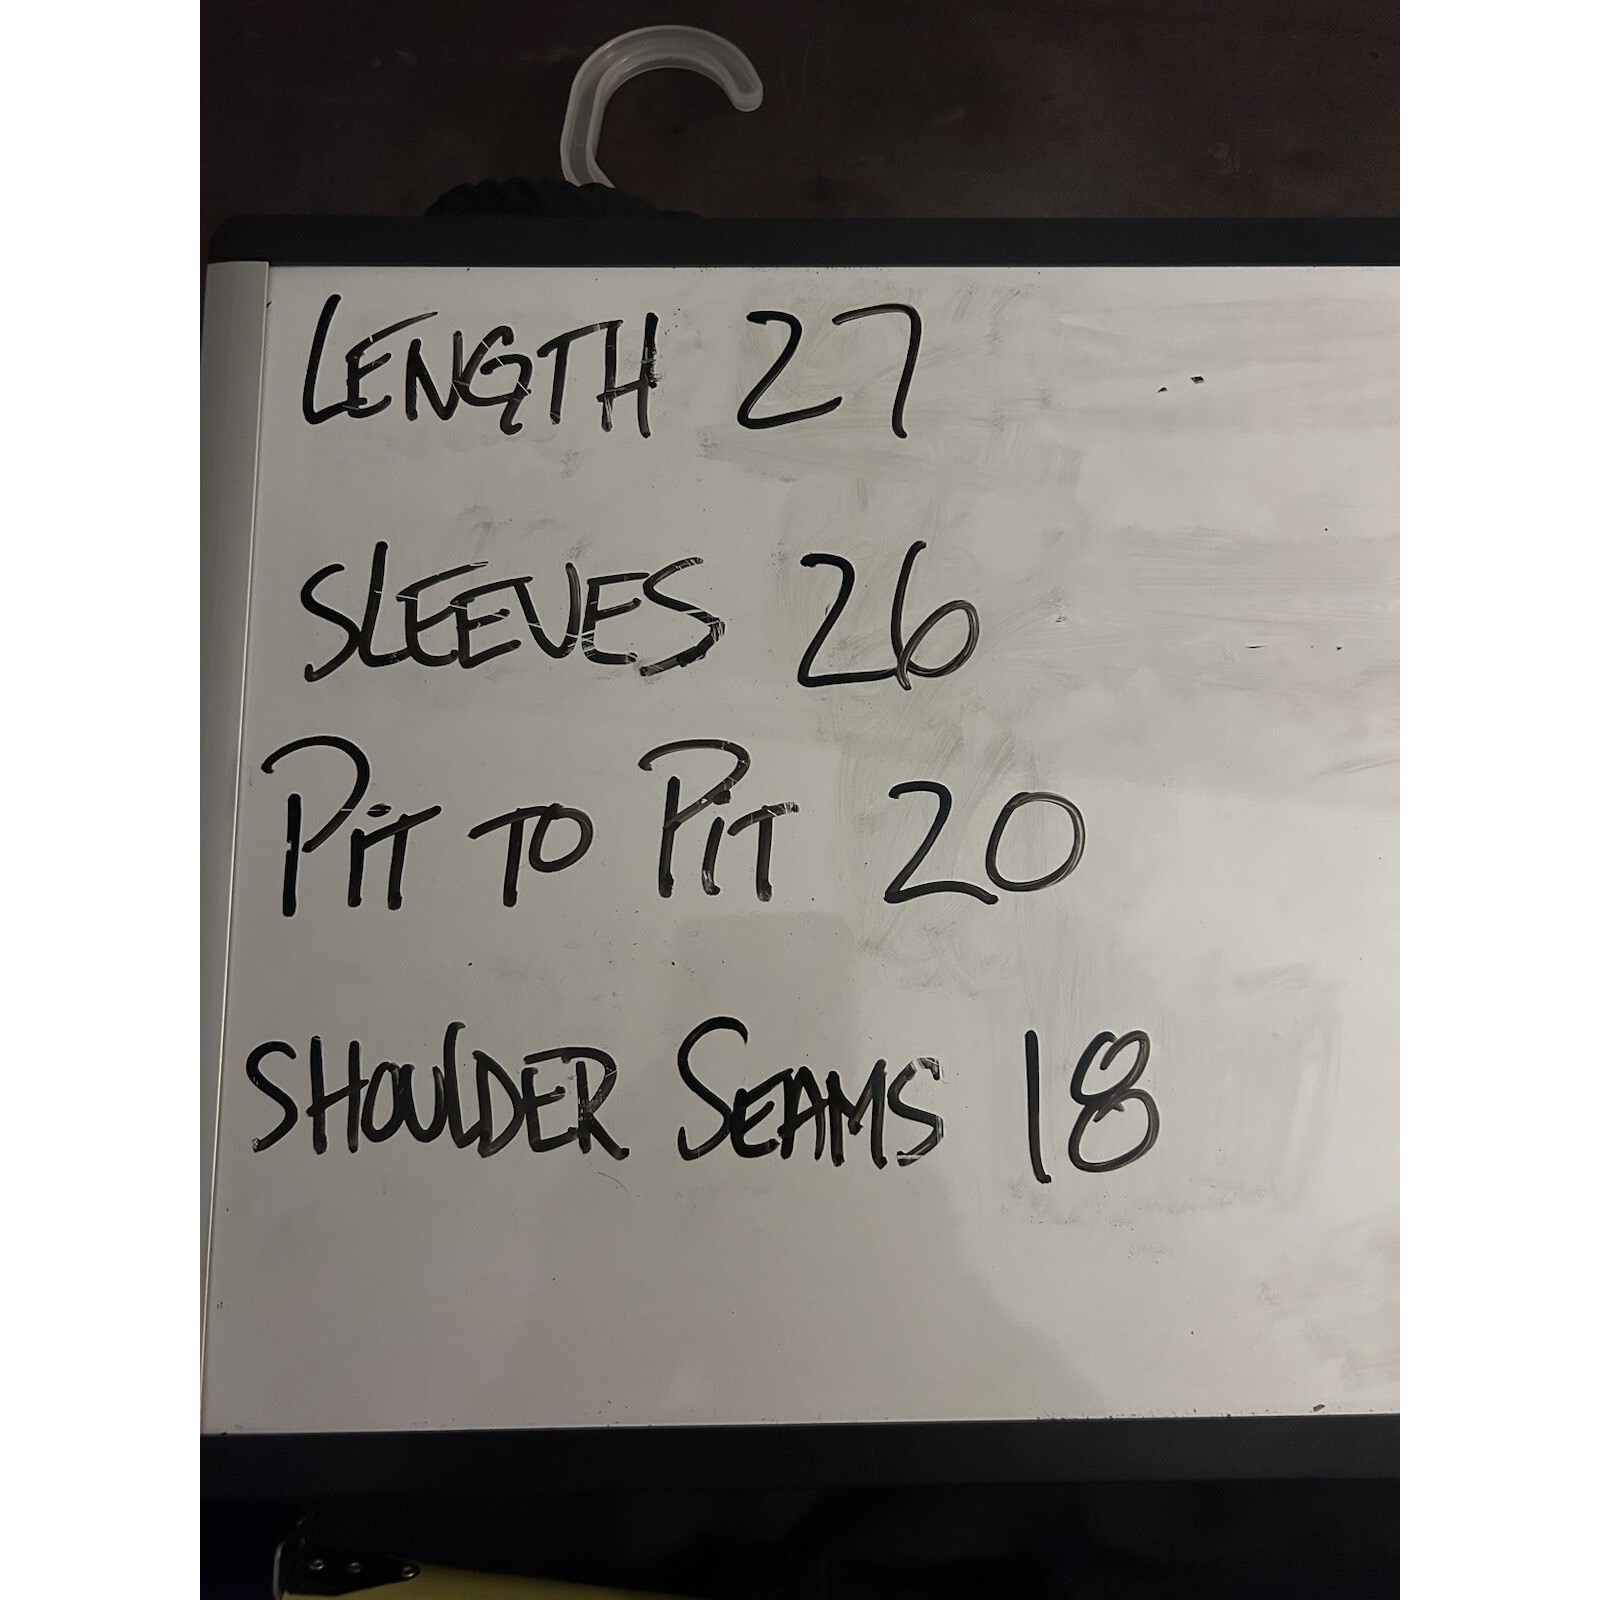 LENGTH 27
SLEEVES 26
PiT TO PiT 20
SHOULDER SEAMS 18